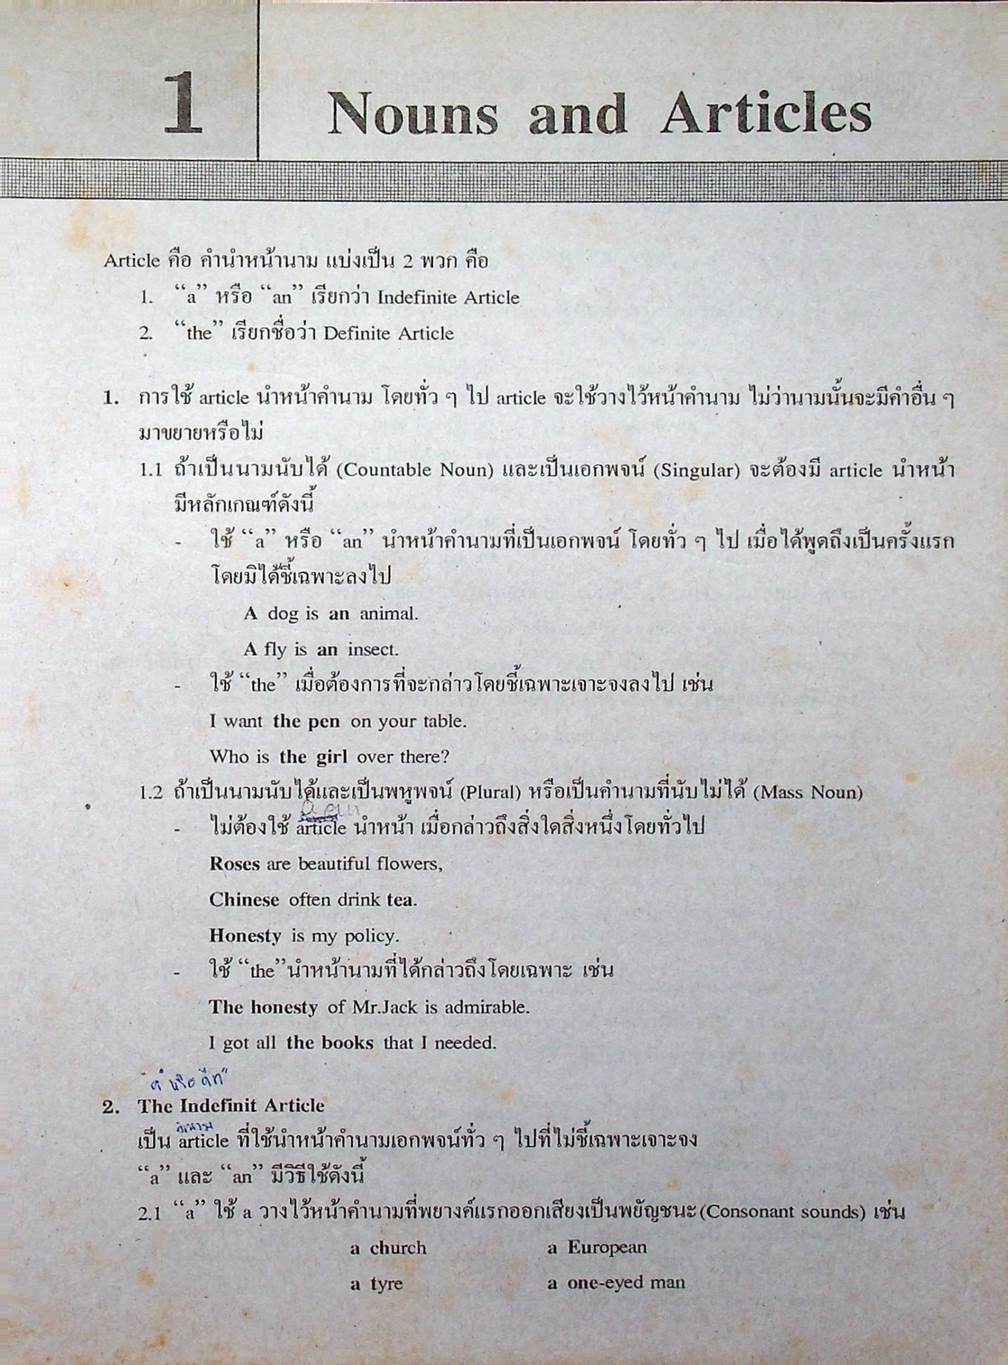 1
Nouns and Articles
Article คือ คำนำหน้านาม แบ่งเป็น 2 พวก คือ
1. “a” หรือ “an” เรียกว่า Indefinite Article
2. “the” เรียกชื่อว่า Definite Article
1. การใช้ article นำหน้าคำนาม โดยทั่ว ๆ ไป article จะใช้วางไว้หน้าคำนาม ไม่ว่านามนั้นจะมีคำอื่น ๆ
มาขยายหรือไม่
1.1 ถ้าเป็นนามนับได้ (Countable Noun) และเป็นเอกพจน์ (Singular) จะต้องมี article นำหน้า
มีหลักเกณฑ์ดังนี้
- ใช้ “a” หรือ “an” นำหน้าคำนามที่เป็นเอกพจน์ โดยทั่ว ๆ ไป เมื่อได้พูดถึงเป็นครั้งแรก
โดยมิได้ชี้เฉพาะลงไป
A dog is an animal.
A fly is an insect.
- ใช้ “the” เมื่อต้องการที่จะกล่าวโดยชี้เฉพาะเจาะจงลงไป เช่น
I want the pen on your table.
Who is the girl over there?
1.2 ถ้าเป็นนามนับได้และเป็นพหูพจน์ (Plural) หรือเป็นคำนามที่นับไม่ได้ (Mass Noun)
- ไม่ต้องใช้ article นำหน้า เมื่อกล่าวถึงสิ่งใดสิ่งหนึ่งโดยทั่วไป
Roses are beautiful flowers,
Chinese often drink tea.
Honesty is my policy.
- ใช้ “the”นำหน้านามที่ได้กล่าวถึงโดยเฉพาะ เช่น
The honesty of Mr.Jack is admirable.
I got all the books that I needed.
2. The Indefinit Article
เป็น article ที่ใช้นำหน้าคำนามเอกพจน์ทั่ว ๆ ไปที่ไม่ชี้เฉพาะเจาะจง
“a” และ “an” มีวิธีใช้ดังนี้
2.1 “a” ใช้ a วางไว้หน้าคำนามที่พยางค์แรกออกเสียงเป็นพยัญชนะ (Consonant sounds) เช่น
a church a European
a tyre a one-eyed man